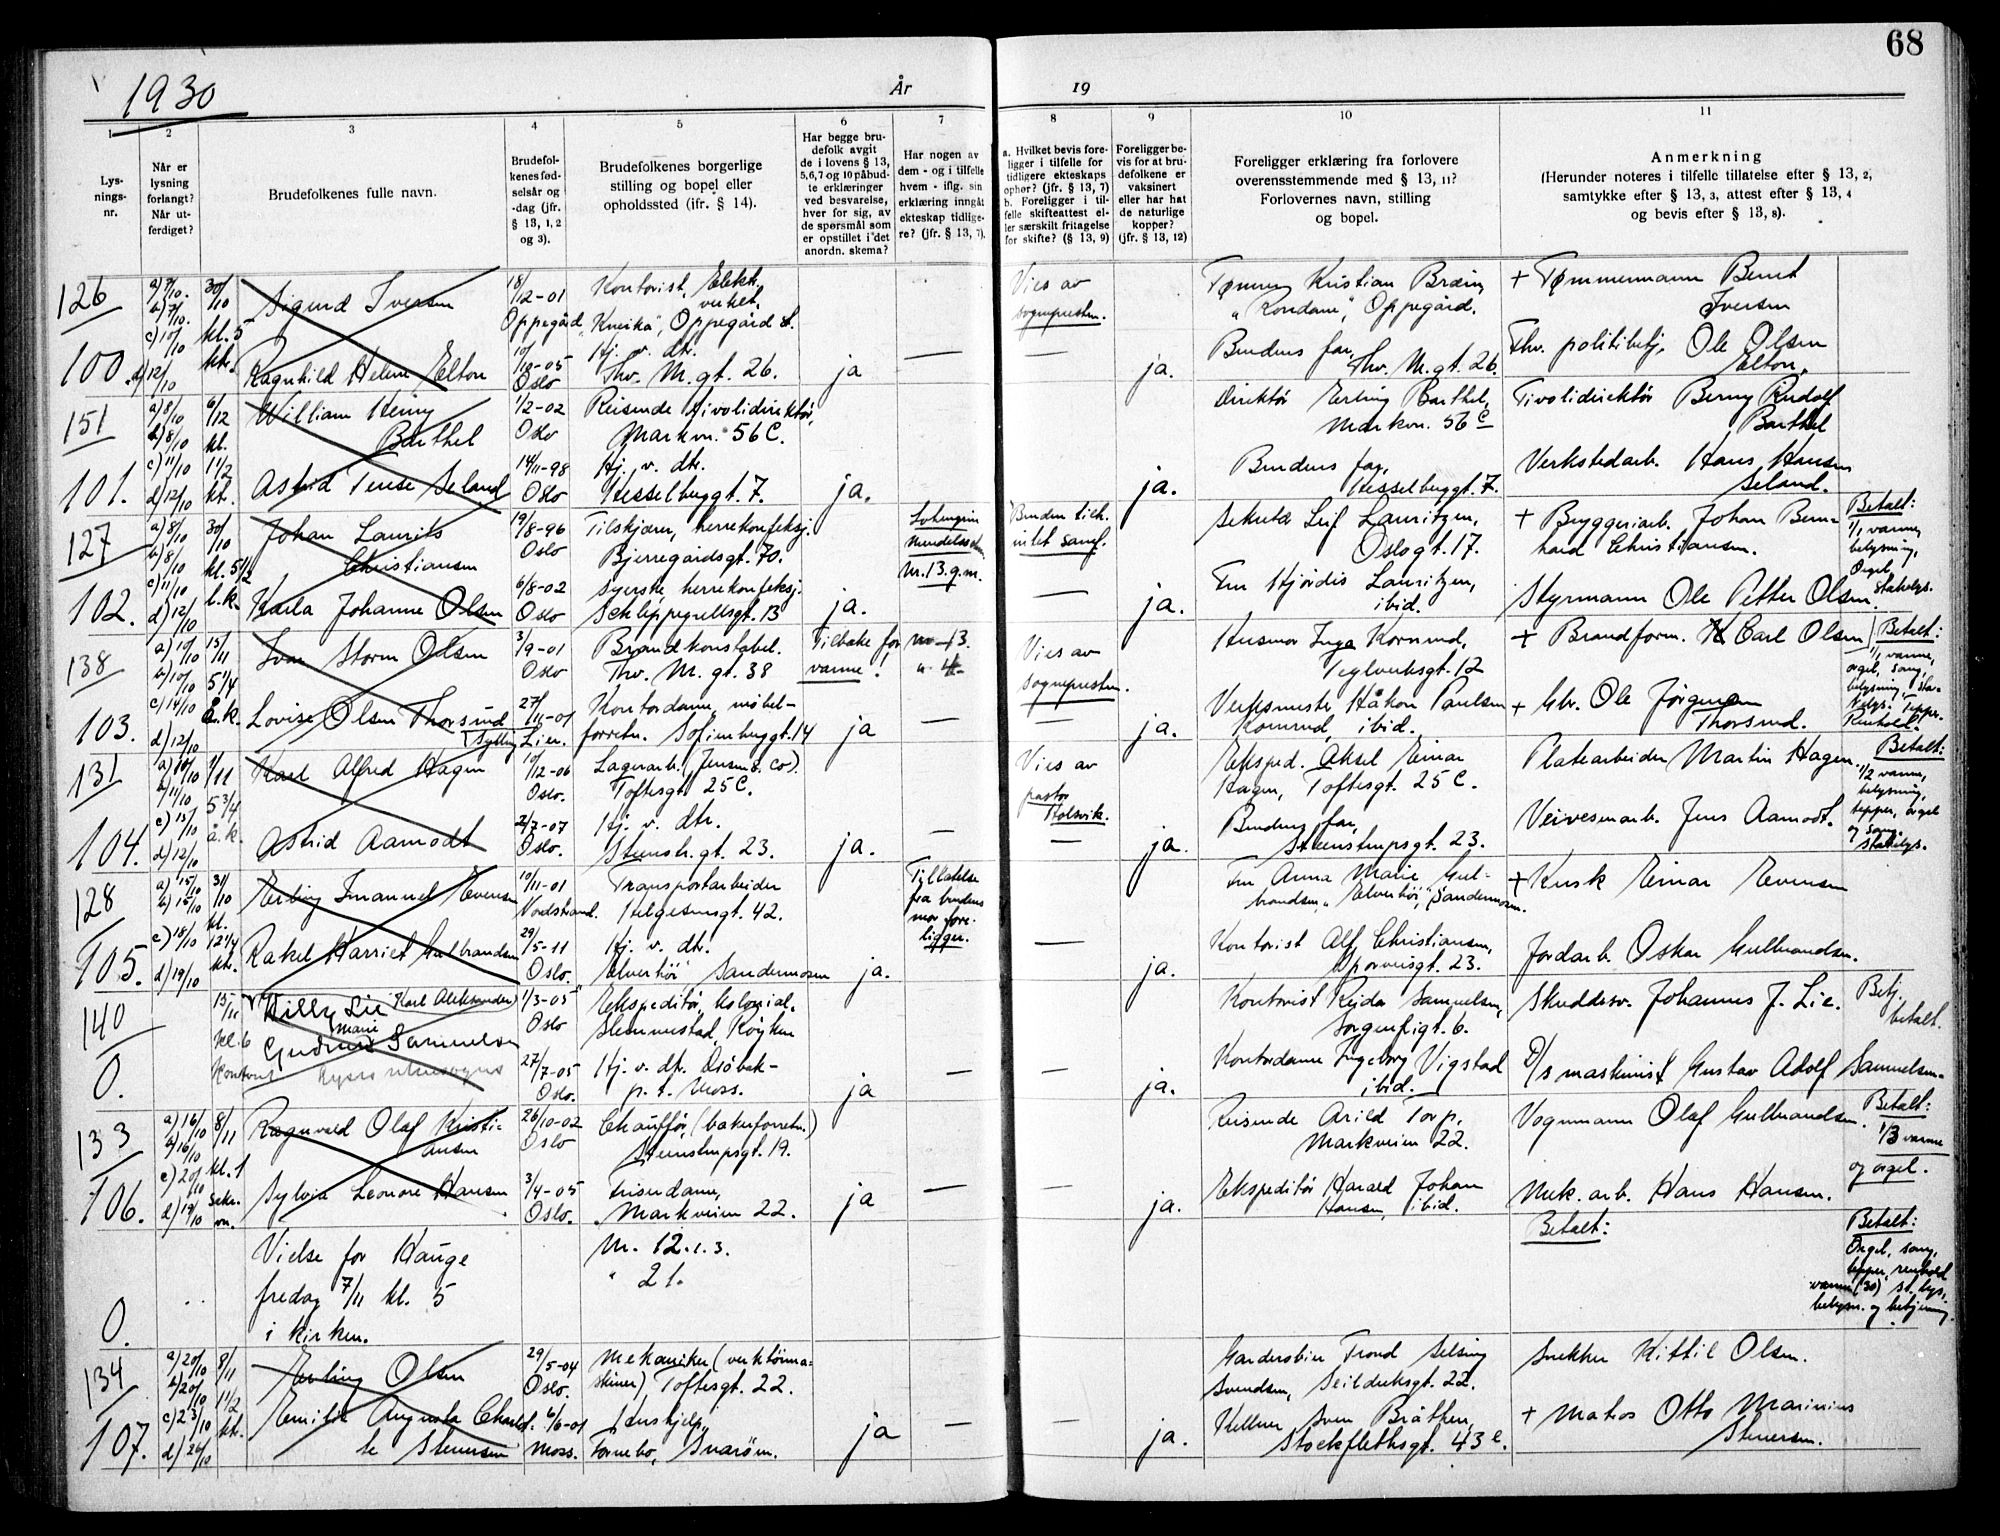 68
1930
År
19
1
2
3
4
5
6
7
8
9
10
11
Lys-
nings-
nr.
Når er
lysning
forlangt?
Når ut-
ferdiget?
Brudefolkenes fulle navn.
Brudefol-
kenes fød-
selsår og
-dag (jfr.
§ 13, 1, 2
og 3).
Brudefolkenes borgerlige
stilling og bopel eller
opholdssted (ifr. § 14).
Har begge bru-
defolk avgit
de i lovens § 13,
5,6,7 og 10 påbud-
te erklæringer
ved besvarelse,
hver for sig, av
de spørsmål som
er opstillet i det
anordn. skema?
Har nogen av
dem - og i tilfelle
hvem - iflg. sin
erklæring inngåt
ekteskap tidlige-
re? (jfr. § 13, 7).
a. Hvilket bevis fore-
ligger i tilfelle for
tidligere ekteskaps
ophør? (jfr. § 13, 7)
b. Foreligger i til-
felle skifteattest el-
ler særskilt fritagelse
for skifte? (§ 13, 9)
Foreligger be-
vis for at bru-
defolkene er
vaksinert
eller har hat
de naturlige
kopper?
(jfr. § 13, 12)
Foreligger erklæring fra forlovere
overensstemmende med § 13, 11?
Forlovernes navn, stilling
og bopel.
Anmerkning
(Herunder noteres i tilfelle tillatelse efter § 13, 2,
samtykke efter § 13, 3, attest efter § 13, 4
og bevis efter § 13, 8).
126
30/10
kl. 5
Sigurd Iversen
18/12-01
Oppegård
Kontorist, Elekt.
verket,
"Kneika", Oppegård st.
Vies av
sognepresten.
Kristian Bræin,
"Rondane", Oppegård.
+ Tømmermann Bernt
Iversen
100.
d) 12/10
Ragnhild Helene Elton
10/10-05
Oslo
Hj. v. dtr.
Thv. M. gt. 26.
ja
—
—
ja.
Brudens far,
Thv. M. gt. 26.
Fhv. politibetj. Ole Olsen
Elton.
151
a) 8/10
b) 8/10
6/12
kl.
William Henry
Barthel
1/2-02
Oslo
Reisende tivolidirektør,
Markvn. 56 C.
Direktør Erling Barthel,
Markvn. 56 C
Tivolidirektør Berny Rudolf
Barthel
101.
c) 11/10
d) 12/10
1 1/2
kt.
Astrid Terese Seland
14/11-98
Oslo
Hj. v. dtr.
Hesselbuggt. 7.
ja.
ja.
Brudens far,
Hesselbuggt. 7.
Verkstedarb. Hans Hansen
Seland.
127
a) 8/10
b) 8/10
30/10
kl. 5 1/2
Johan Laurits
Christiansen
19/8-96
Oslo
Tilskjærer, herrekonfeksj.
Bjerregårdsgt. 70.
Lohengrin
Mendelssohn.
Nr. 13. g. m.
Sekretær Leif Lauritzen,
Oslogt. 17.
+ Bryggeriarb. Johan Bern-
hard Christiansen.
Betalt:
1/1 varme,
belysning,
Orgel
Stakelys.
102.
c) 11/10
d) 12/10
Karla Johanne Olsen
6/8-02
Oslo
Syerske, herrekonfeksj.
Schleppegrellsgt. 13
ja.
—
ja.
Fru Hjördis Lauritzen,
ibid.
Styrmann Ole Petter Olsen.
138
a) 10/10
b) 10/10
15/11
5 1/4
Ivar Storm Olsen
3/9-01
Oslo
Brandkonstabel.
Thv. M. gt. 38
Tilbake for
varme!
Vies av
sognepresten.
Husmor Inga Kornrud,
Teglverksgt. 12
+ Brandform. Carl Olsen
Betalt:
1/1 varme,
orgel, sang,
103.
c) 14/10
d) 12/10
Lovise Olsen Thorsrud
27/11-01
Lier.
Kontordame, møbel-
forretn. Sofienbuggt. 14
ja
—
—
ja.
Verksmester Håkon Paulsen
Kornrud, ibid.
+ Gbr. Ole Jørgensen
Thorsrud.
131
1/11
5 3/4
å. k.
Karl Alfred Hagen
10/12-06
Oslo.
Lagerarb. (Jensen & Co).
Toftesgt. 25 C.
Vies av
pastor
Holsvik.
Eksped. Aksel Einar
Hagen, Toftesgt. 25 C.
Platearbeider Martin Hagen.
Betalt:
1/2 varme,
belysning,
tepper, orgel
og sang.
Stakelys.
104.
c) 15/10
d) 12/10
Astrid Aamodt
2/7-07
Oslo.
Hj. v. dtr.
Steenstr. gt. 23.
ja.
—
—
ja.
Brudens far,
Steenstrupsgt. 23.
Veivesenarb. Jens Aamodt.
128
a) 15/10
b) 15/10
31/10
kl.
Erling Imanuel Evensen
10/11-01
Nordstrand.
Transportarbeider
Helgesensgt. 42.
Tillatelse
fra brudens
mor fore-
ligger.
Fru Anna Marie Gul-
brandsen, "Elverhöi", Sandermosen.
+ Kusk Einar Evensen
105.
c) 18/10
d) 19/10
12 1/4
kt.
Rakel Harriet Gulbrandsen
29/5-11
Oslo.
Hj. v. dtr.
"Elverhöi" Sandermosen
ja.
—
ja.
Kontorist Alf Christiansen,
Sporveisgt. 23.
Jordarb. Oskar Gulbrandsen.
140
15/11
kl. 6
Willy Lie (Karl Aleksander)
1/3-05
Oslo
Ekspeditør, kolonial.
Slemmestad, Røyken
Kontorist Reidar Samuelsen,
Sorgenfrigt. 6.
Skuddsv. Johannes J. Lie.
Betj.
betalt.
0.
Gudrun Marie Samuelsen
27/7-05
Oslo.
Hj. v. dtr. Drøbak-
p. t. Moss.
ja
—
—
ja.
Kontordame Ingeborg Vigstad
ibid.
D/s maskinist Gustav Adolf Samuelsen.
133
a) 16/10
b) 16/10
8/11
kl. 1
Ragnvald Olaf Kristi-
ansen
26/10-02
Oslo
Chauffør, (bakerforretn.)
Steenstrupsgt. 19.
Reisende Arild Torp,
Markveien 22.
Vognmann Olaf Gulbrandsen.
Betalt:
1/3 varme
og orgel.
106.
c) 20/10
d) 19/10
Sylvia Leonore Hansen
3/4-05
Oslo.
Frisørdame,
Markveien 22.
ja
—
—
ja.
Ekspeditør Harald Johan
Hansen, ibid.
Mek. arb. Hans Hansen.
0.
Vielse for Hauge
fredag 7/11 kl. 5
i kirken.
Nr. 12. 1. 3.
" 21.
Betalt:
Betalt:
Orgel, sang,
tepper, renhold
varme (30) st. lys,
belysn. og betjening.
134
a) 20/10
b) 20/10
8/11
1 1/2
Erling Olsen
29/5-04
Oslo.
Mekaniker (verktøima-
skiner), Toftesgt. 22.
Garderobier Trond Selsing
Svendsen, Seilduksgt. 22.
Snekker Kittil Olsen.
107.
c) 23/10
d) 24/10
kt.
Emilie Augusta Charlot-
te Stenersen
6/6-01
Moss.
Hushjelp,
Fornebo, Snarøen.
ja
—
—
ja.
Kellner Sven Bråthen,
Stockflethsgt. 43 e.
+ Matros Otto Marinius
Stenersen.